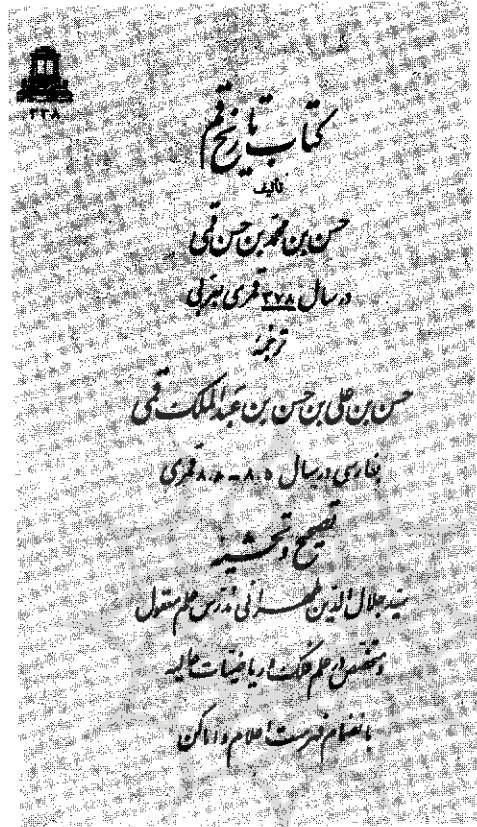 ۲۳۸
کتاب تاریخ قم
تألیف
حسن بن محمد بن حسن قمی
در سال ۳۷۸ قمری بعربی
ترجمه
حسن بن علی بن حسن بن عبدالملک قمی
بفارسی در سال ۸۰۵ - ۸۰۶ قمری
تصحیح و تحشیه
سید جلال الدین طهرانی مدرس علم معقول
و متخصص در علم فلک و ریاضیات عالیه
بانضمام فهرست اعلام و اماکن